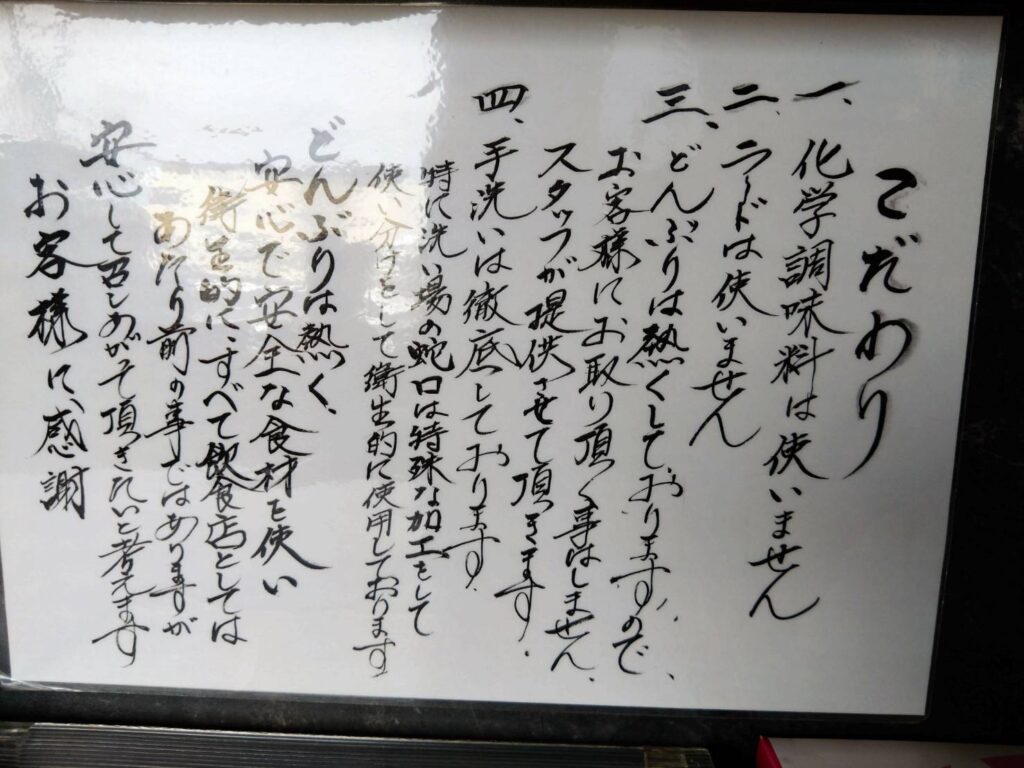 こだわり
一、化学調味料は使いません
二、ラードは使いません
三、どんぶりは熱くしております。ので、
お客様にお取り頂く事はしません、
スタッフが提供させて頂きます。
四、手洗いは徹底しております。
特に洗い場の蛇口は特殊な加工をして
使い分けをして衛生的に使用しております
どんぶりは熱く、
安心で安全な食材を使い
衛生的にすべて飲食店としては
あたり前の事ではありますが
安心して召しあがって頂きたいと考えます
お客様に、感謝